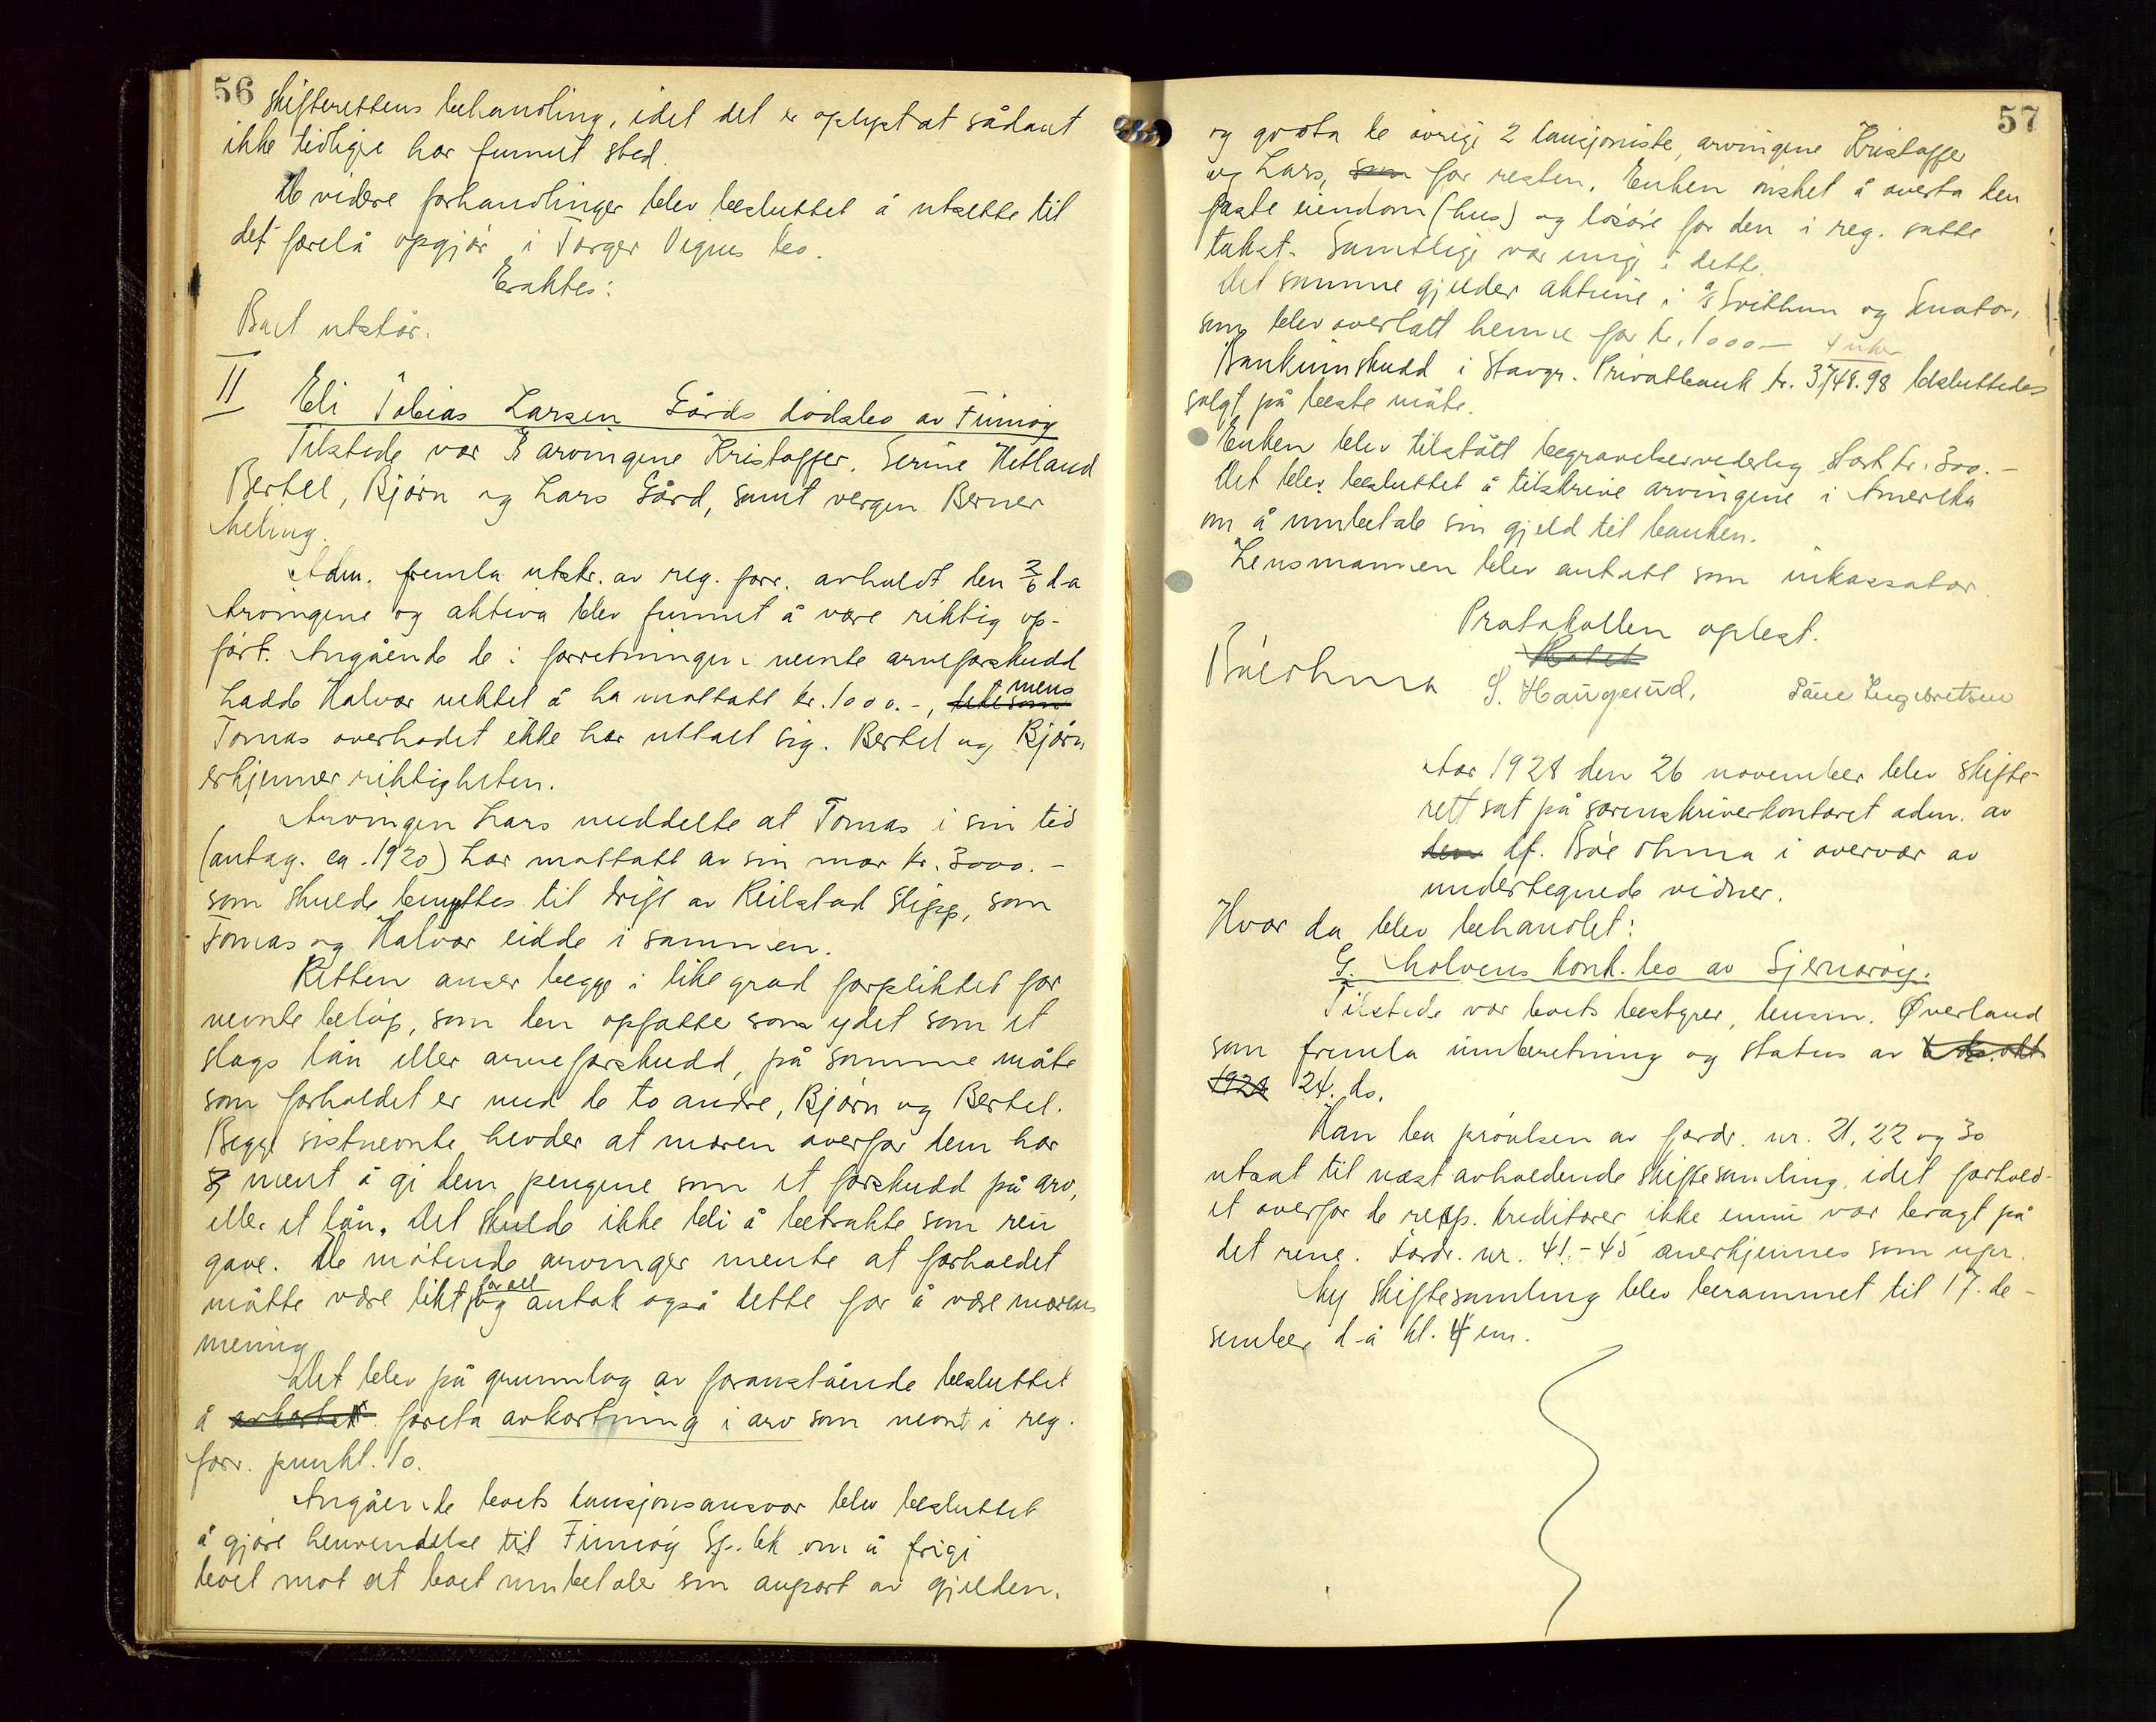 56
skifterettens behandling, idet det er oplyst at sådant
ikke tidligere har funnet sted.
De videre forhandlinger blev besluttet å utsette til
det forelå opgjør i Torger Vignes bo.
Eraktes:
Boet utstår.
II
Eli Tobias Larsen Gårds dødsbo av Finnøy
Tilstede var arvingene Kristoffer, Serine Hetland
Bertel, Bjørn og Lars Gård, samt vergen Berner
Meling.
Adm. fremla utskr. av reg. forr. avholdt den 2/6 d-a
Arvingene og aktiva blev funnet å være riktig op-
ført. Angående de i forretningen nevnte arveforskudd
hadde Halvor nektet å ha mottatt kr. 1000.-, mens
Tomas overhodet ikke har uttalt sig. Bertel og Bjørn
erkjenner riktigheten.
Arvingen Lars meddelte at Tomas i sin tid
(antag. ca. 1920) har mottatt av sin mor kr. 3000.-
som skulde benyttes til drift av Reilstad Slipp, som
Tomas og Halvor eidde i sammen.
Retten anser begge i like grad forpliktet for
nevnte beløp, som den opfatte som ydet som et
slags lån eller arveforskudd, på samme måte
som forholdet er med de to andre, Bjørn og Bertel.
Begge sistnevnte hevder at moren overfor dem har
ment å gi dem pengene som et forskudd på arv,
eller et lån. Det skulde ikke bli å betrakte som ren
gave. De møtende arvinger mente at forholdet
måtte være likt for all og antok også dette for å være morens
mening
Det blev på grunnlag av foranstående besluttet
å avkortet foreta avkortning i arv som nevnt i reg.
forr. punkt. 10.
Angående boets kausjonsansvar blev besluttet
å gjøre henvendelse til Finnøy Sp. bk om å frigi
boet mot at boet innbetaler sin anpart av gjelden.
57
og godta de øvrige 2 kausjoniste, arvingene Kristoffer
og Lars, som for resten. Enken ønsket å overta den
faste eiendom (hus) og løsøre for den i reg. satte
takst. Samtlige var enige i dette.
Det samme gjelder aktiene i A/S Svithun og Senator,
som blev overlatt henne for kr. 1000-
Bankinnskudd i Stavgr. Privatbank kr. 3748.98 besluttedes
solgt på beste måte.
Enken blev tilstått begravelsesvederlag stort kr. 300.-
Det blev besluttet å tilskrive arvingene i Amerika
om å innbetale sin gjeld til banken.
Lensmannen blev antatt som inkassator.
Protokollen oplest.
Hevet
Bøe Ohma S. Haugeund. Engebretsen
Aar 1928 den 26 november blev skifte-
rett sat på sorenskriverkontoret adm. av
den df. Bøe Ohma i overvær av
undertegnede vidner.
Hvor da blev behandlet:
G. Molvens konk. bo av Sjernerøy.
Tilstede var boets bestyrer, lensm. Øverland
som fremla innberetning og status av
1928 24. ds.
Han ba prøvelsen av fordr. nr. 21, 22 og 30
utsat til næst avholdende skiftesamling, idet forhold-
et overfor de resp. kreditorer ikke ennu var bragt på
det rene. Fordr. nr. 41.-45 anerkjennes som upr.
Ny skiftesamling blev berammet til 17. de-
sember d-å kl. 4 em.